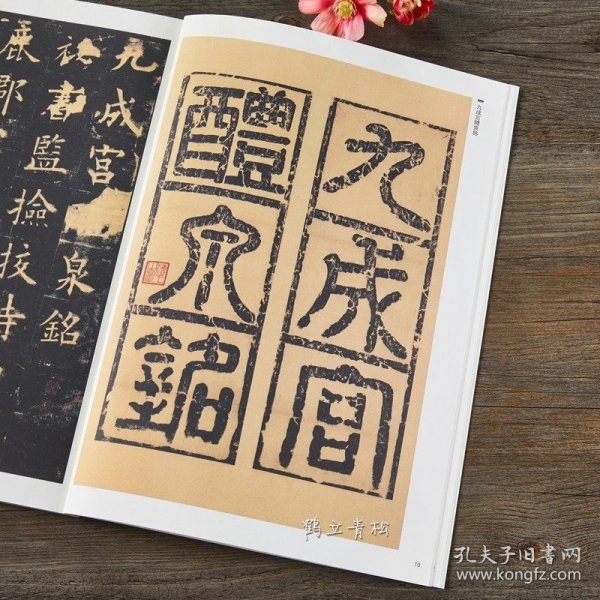 九成宮
醴泉銘
九成宫醴泉铭
九成宮
泉銘
祕書監撿挍侍
鹿郡
10
鹤立青松
孔夫子旧书网
www.kongfz.com